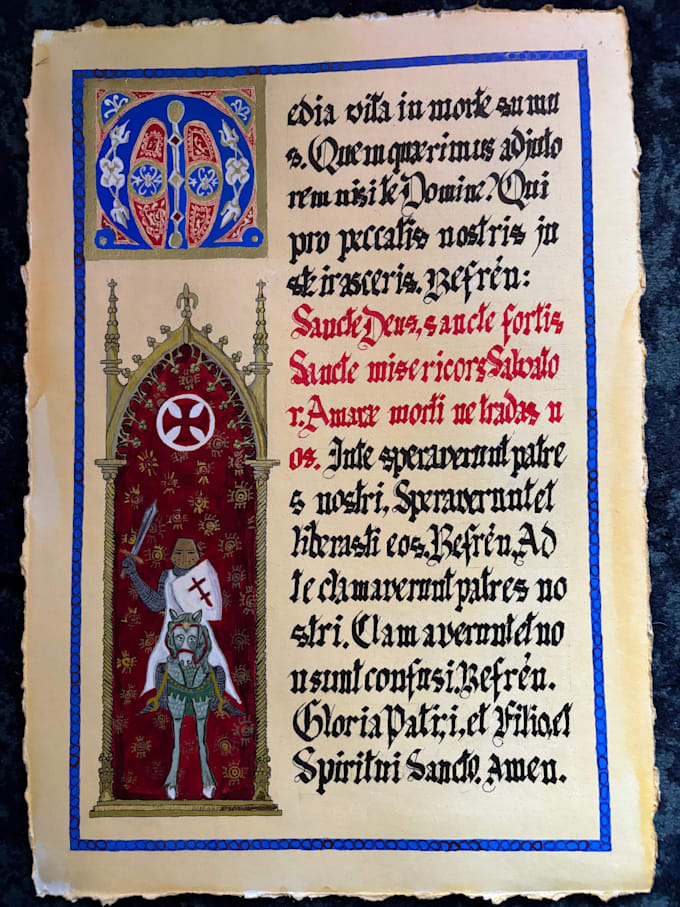 Media vita in morte sumu
s. Quem quærimus adjuto
rem nisi te Domine? Qui
pro peccatis nostris ju
ste irasceris. Refrén:
Sancte Deus, sancte fortis
Sancte misericors Salvato
r. Amaræ morti ne tradas n
os. In te speraverunt patre
s nostri, Speraverunt et
liberasti eos. Refrén. Ad
te clamaverunt patres no
stri. Clamaverunt et no
n sunt confusi. Refrén.
Gloria Patri, et Filio, et
Spiritui Sancto. Amen.